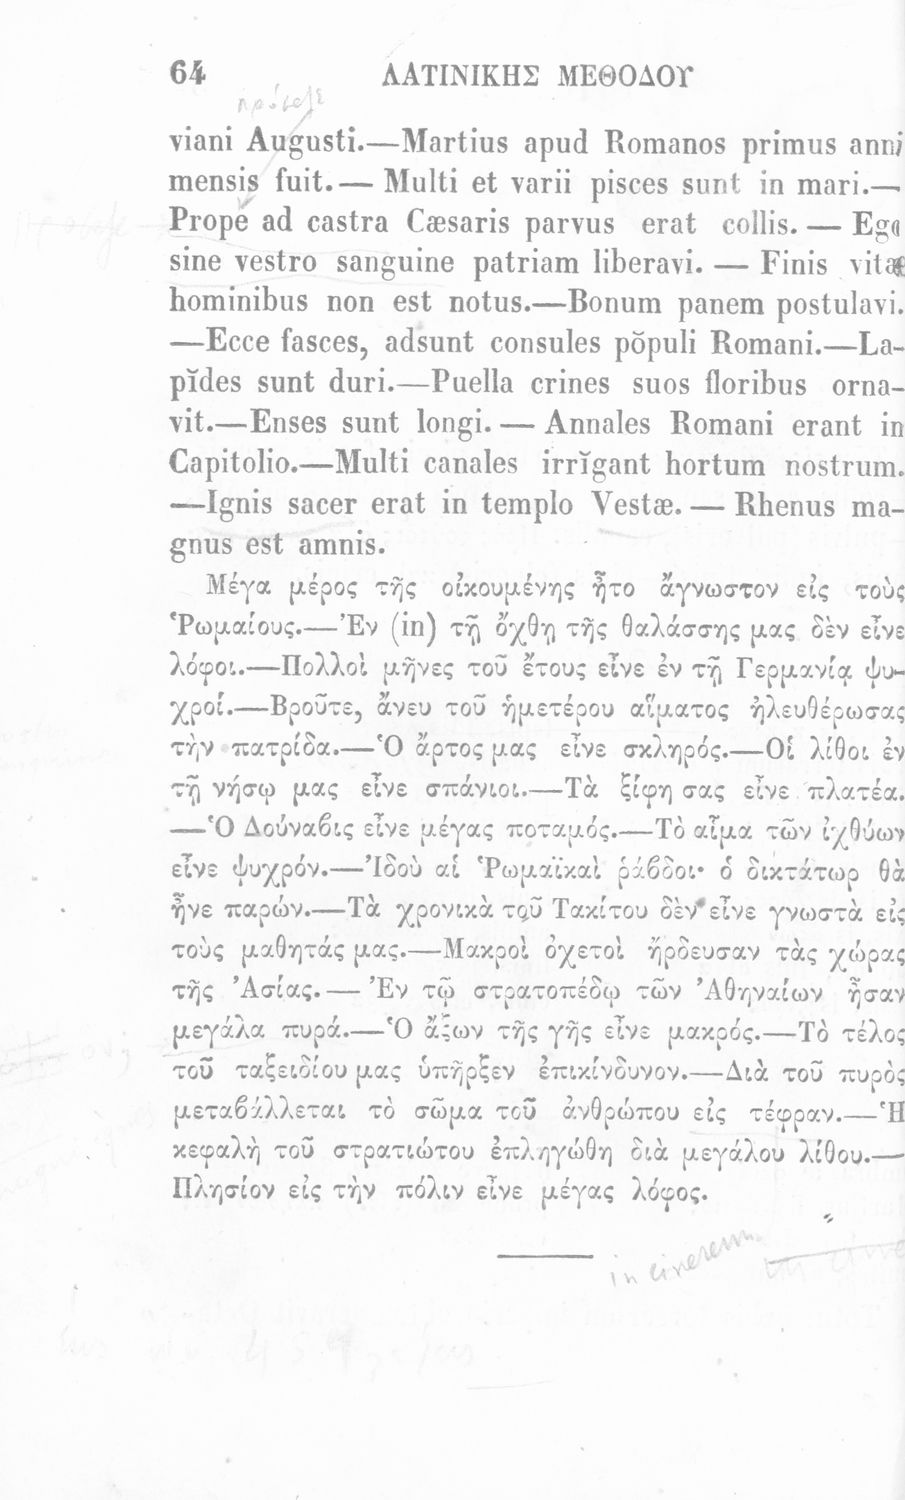 64 ΛΑΤΙΝΙΚΗΣ ΜΕΘΟΔΟΥ
viani Augusti.—Martius apud Romanos primus anni
mensis fuit.— Multi et varii pisces sunt in mari.—
Prope ad castra Cæsaris parvus erat collis. — Ego
sine vestro sanguine patriam liberavi. — Finis vitæ
hominibus non est notus.—Bonum panem postulavi.
—Ecce fasces, adsunt consules pŏpuli Romani.—La-
pĭdes sunt duri.—Puella crines suos floribus orna-
vit.—Enses sunt longi. — Annales Romani erant in
Capitolio.—Multi canales irrĭgant hortum nostrum.
—Ignis sacer erat in templo Vestæ. — Rhenus ma-
gnus est amnis.
Μέγα μέρος τῆς οἰκουμένης ἦτο ἄγνωστον εἰς τοὺς
Ῥωμαίους.—Ἐν (in) τῇ ὄχθῃ τῆς θαλάσσης μας δὲν εἶνε
λόφοι.—Πολλοὶ μῆνες τοῦ ἔτους εἶνε ἐν τῇ Γερμανίᾳ ψυ-
χροί.—Βροῦτε, ἄνευ τοῦ ἡμετέρου αἵματος ἠλευθέρωσας
τὴν πατρίδα.—Ὁ ἄρτος μας εἶνε σκληρός.—Οἱ λίθοι ἐν
τῇ νήσῳ μας εἶνε σπάνιοι.—Τὰ ξίφη σας εἶνε πλατέα.
—Ὁ Δούναβις εἶνε μέγας ποταμός.—Τὸ αἷμα τῶν ἰχθύων
εἶνε ψυχρόν.—Ἰδοὺ αἱ Ῥωμαϊκαὶ ῥάβδοι· ὁ δικτάτωρ θὰ
ἦνε παρών.—Τὰ χρονικὰ τοῦ Τακίτου δὲν εἶνε γνωστὰ εἰς
τοὺς μαθητάς μας.—Μακροὶ ὀχετοὶ ἤρδευσαν τὰς χώρας
τῆς Ἀσίας. — Ἐν τῷ στρατοπέδῳ τῶν Ἀθηναίων ἦσαν
μεγάλα πυρά.—Ὁ ἄξων τῆς γῆς εἶνε μακρός.—Τὸ τέλος
τοῦ ταξειδίου μας ὑπῆρξεν ἐπικίνδυνον.—Διὰ τοῦ πυρὸς
μεταβάλλεται τὸ σῶμα τοῦ ἀνθρώπου εἰς τέφραν.—Ἡ
κεφαλὴ τοῦ στρατιώτου ἐπληγώθη διὰ μεγάλου λίθου.—
Πλησίον εἰς τὴν πόλιν εἶνε μέγας λόφος.
in cinerem